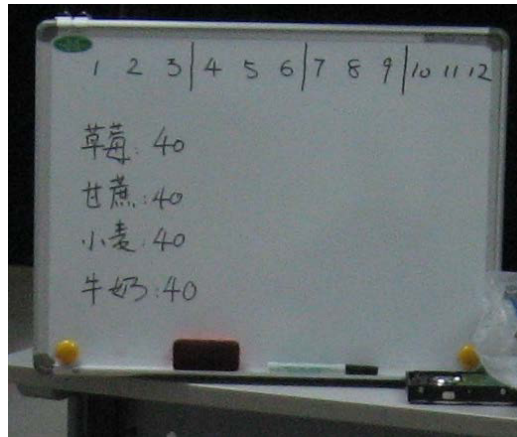 1 2 3 | 4 5 6 | 7 8 9 | 10 11 12
草莓: 40
甘蔗: 40
小麦: 40
牛奶: 40